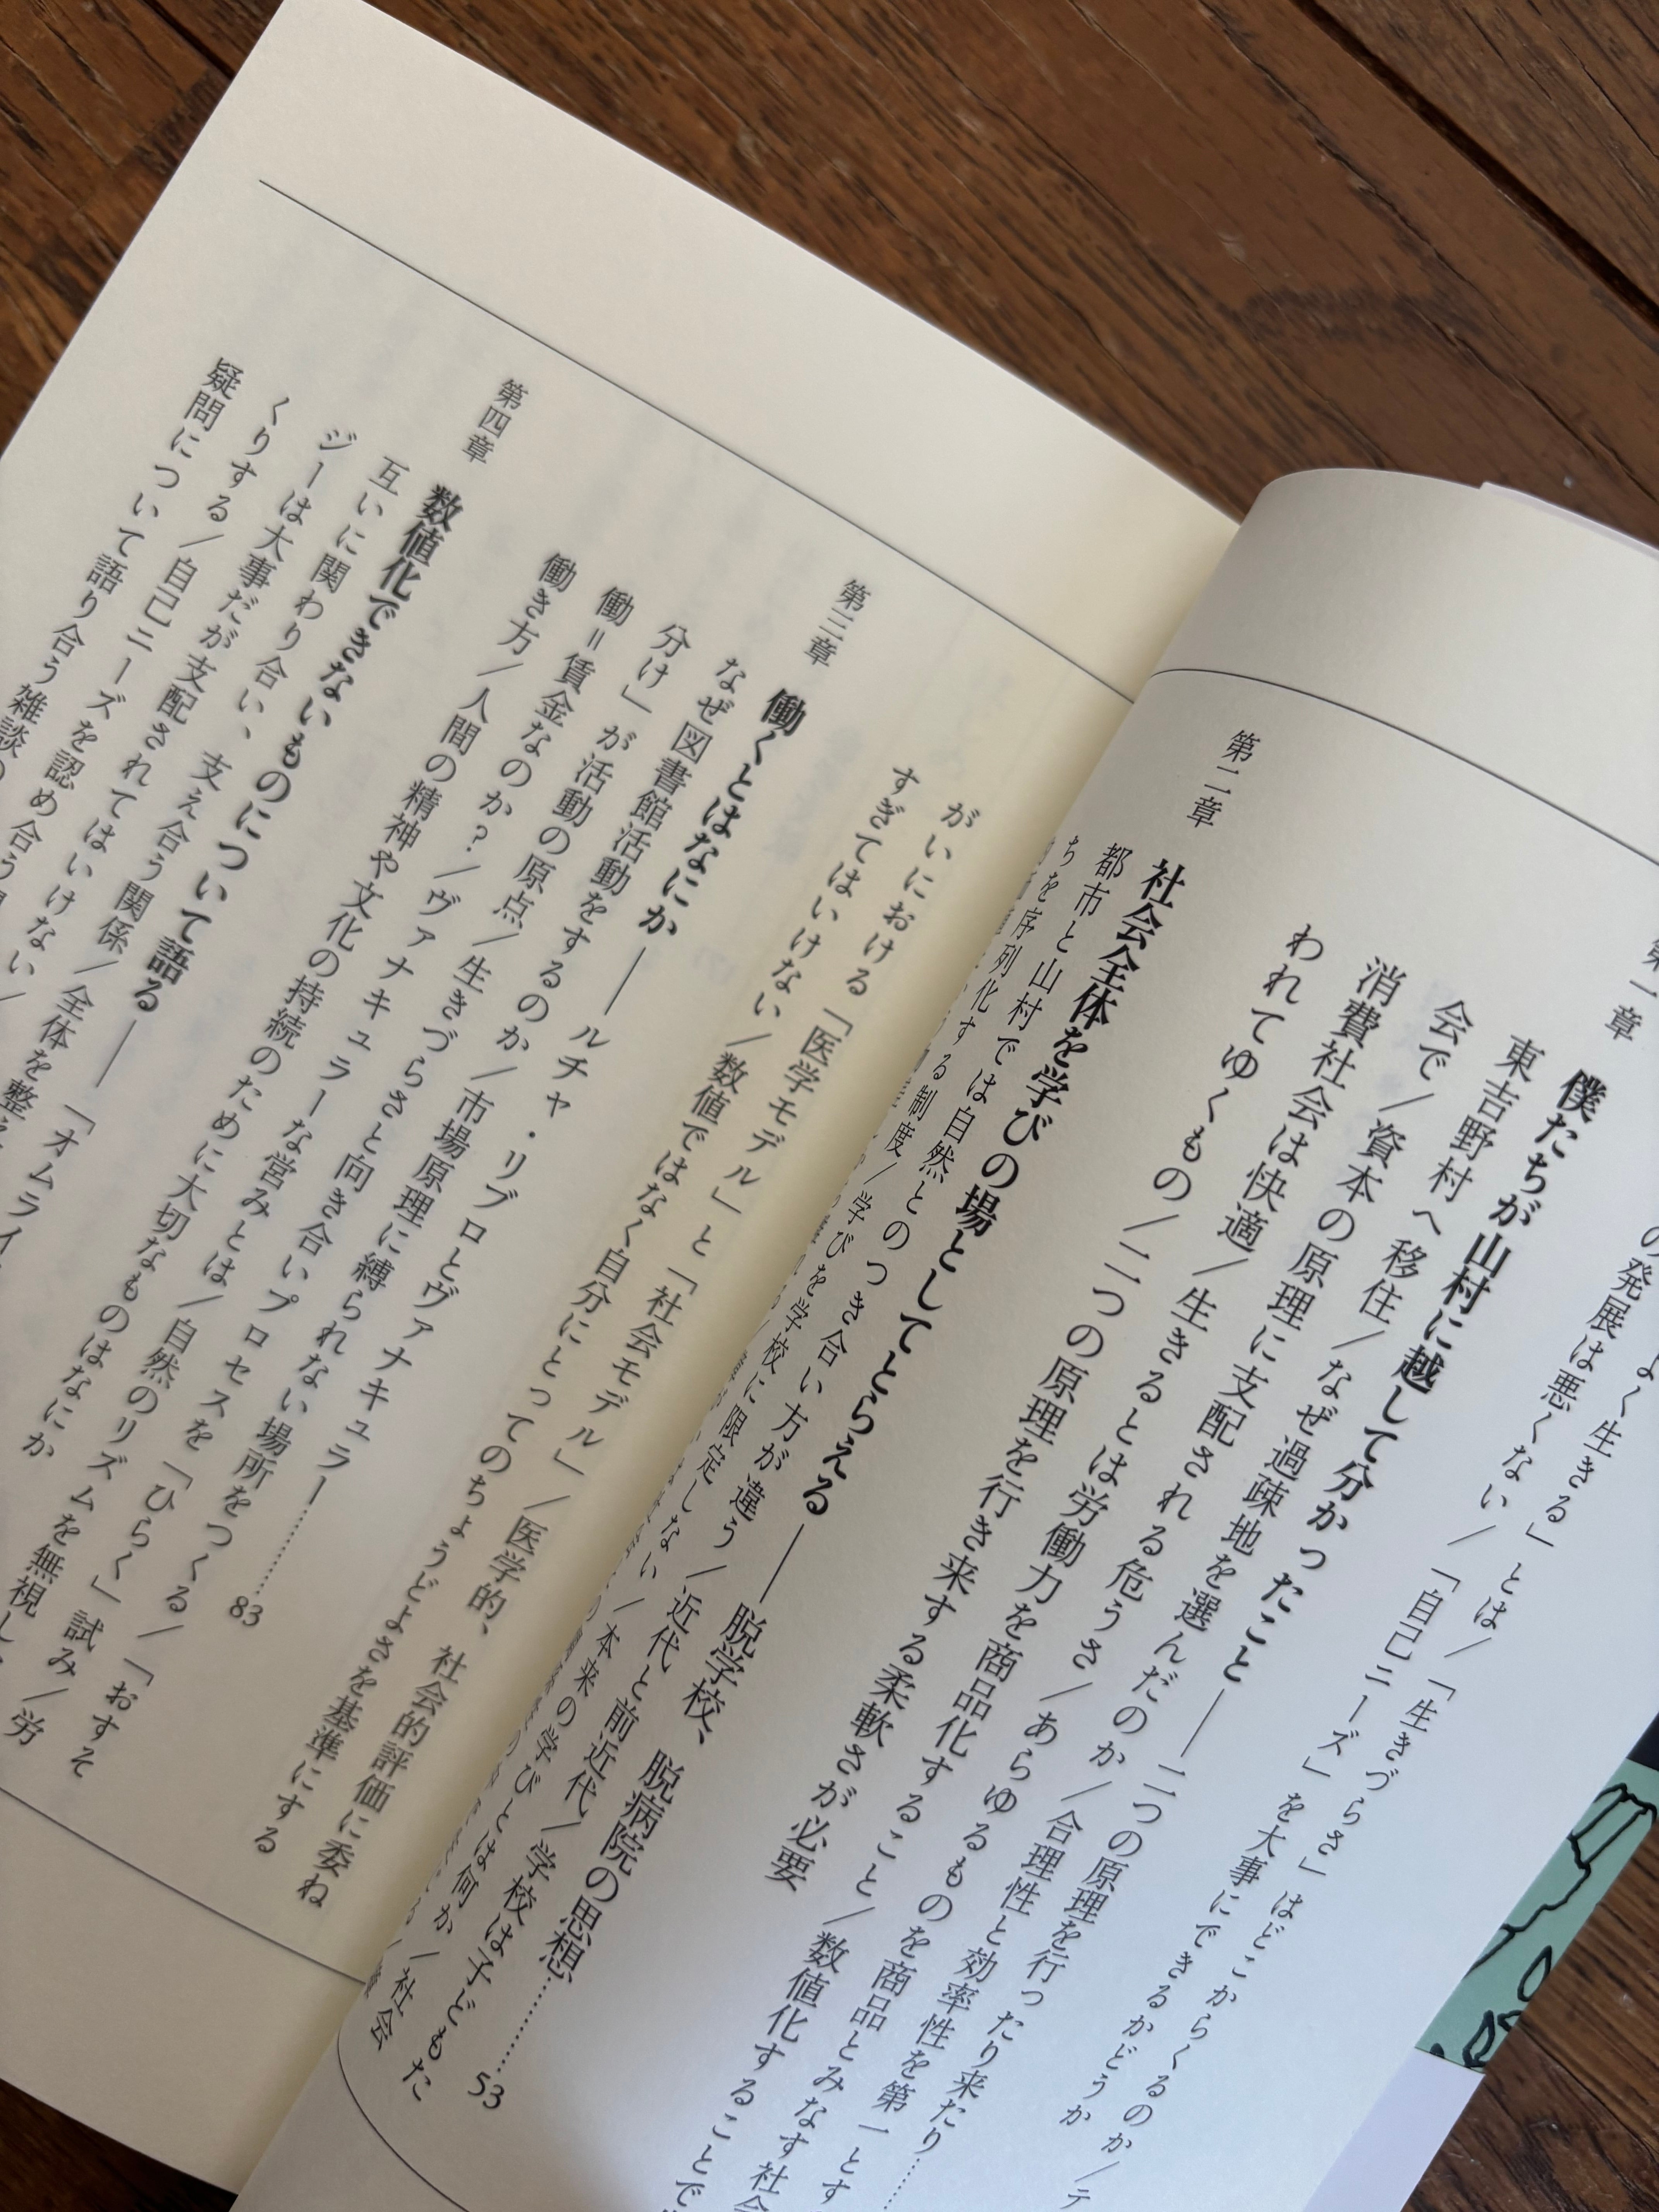 よく生きる」とは/「生きづらさ」はどこからくるのか/テ
の発展は悪くない/「自己ニーズ」を大事にできるかどうか
第一章 僕たちが山村に越して分かったこと――二つの原理を行ったり来たり……
東吉野村へ移住/なぜ過疎地を選んだのか/合理性と効率性を第一とす
会で/資本の原理に支配される危うさ/あらゆるものを商品とみなす社会
消費社会は快適/生きるとは労働力を商品化すること/数値化することで
われてゆくもの/二つの原理を行き来する柔軟さが必要
第二章 社会全体を学びの場としてとらえる――脱学校、脱病院の思想…………53
都市と山村では自然とのつき合い方が違う/近代と前近代/学校は子どもた
ちを序列化する制度/学びを学校に限定しない/本来の学びとは何か/社会
がいにおける「医学モデル」と「社会モデル」/医学的、社会的評価に委ね
すぎてはいけない/数値ではなく自分にとってのちょうどよさを基準にする
第三章 働くとはなにか――ルチャ・リブロとヴァナキュラー…………83
なぜ図書館活動をするのか/市場原理に縛られない場所をつくる/「おすそ
分け」が活動の原点/生きづらさと向き合いプロセスを「ひらく」試み/労
働=賃金なのか?/ヴァナキュラーな営みとは/自然のリズムを無視し
働き方/人間の精神や文化の持続のために大切なものはなにか
第四章 数値化できないものについて語る――「オムライ
互いに関わり合い、支え合う関係/全体を整え
ジーは大事だが支配されてはいけない/
くりする/自己ニーズを認め合う
疑問について語り合う雑談の